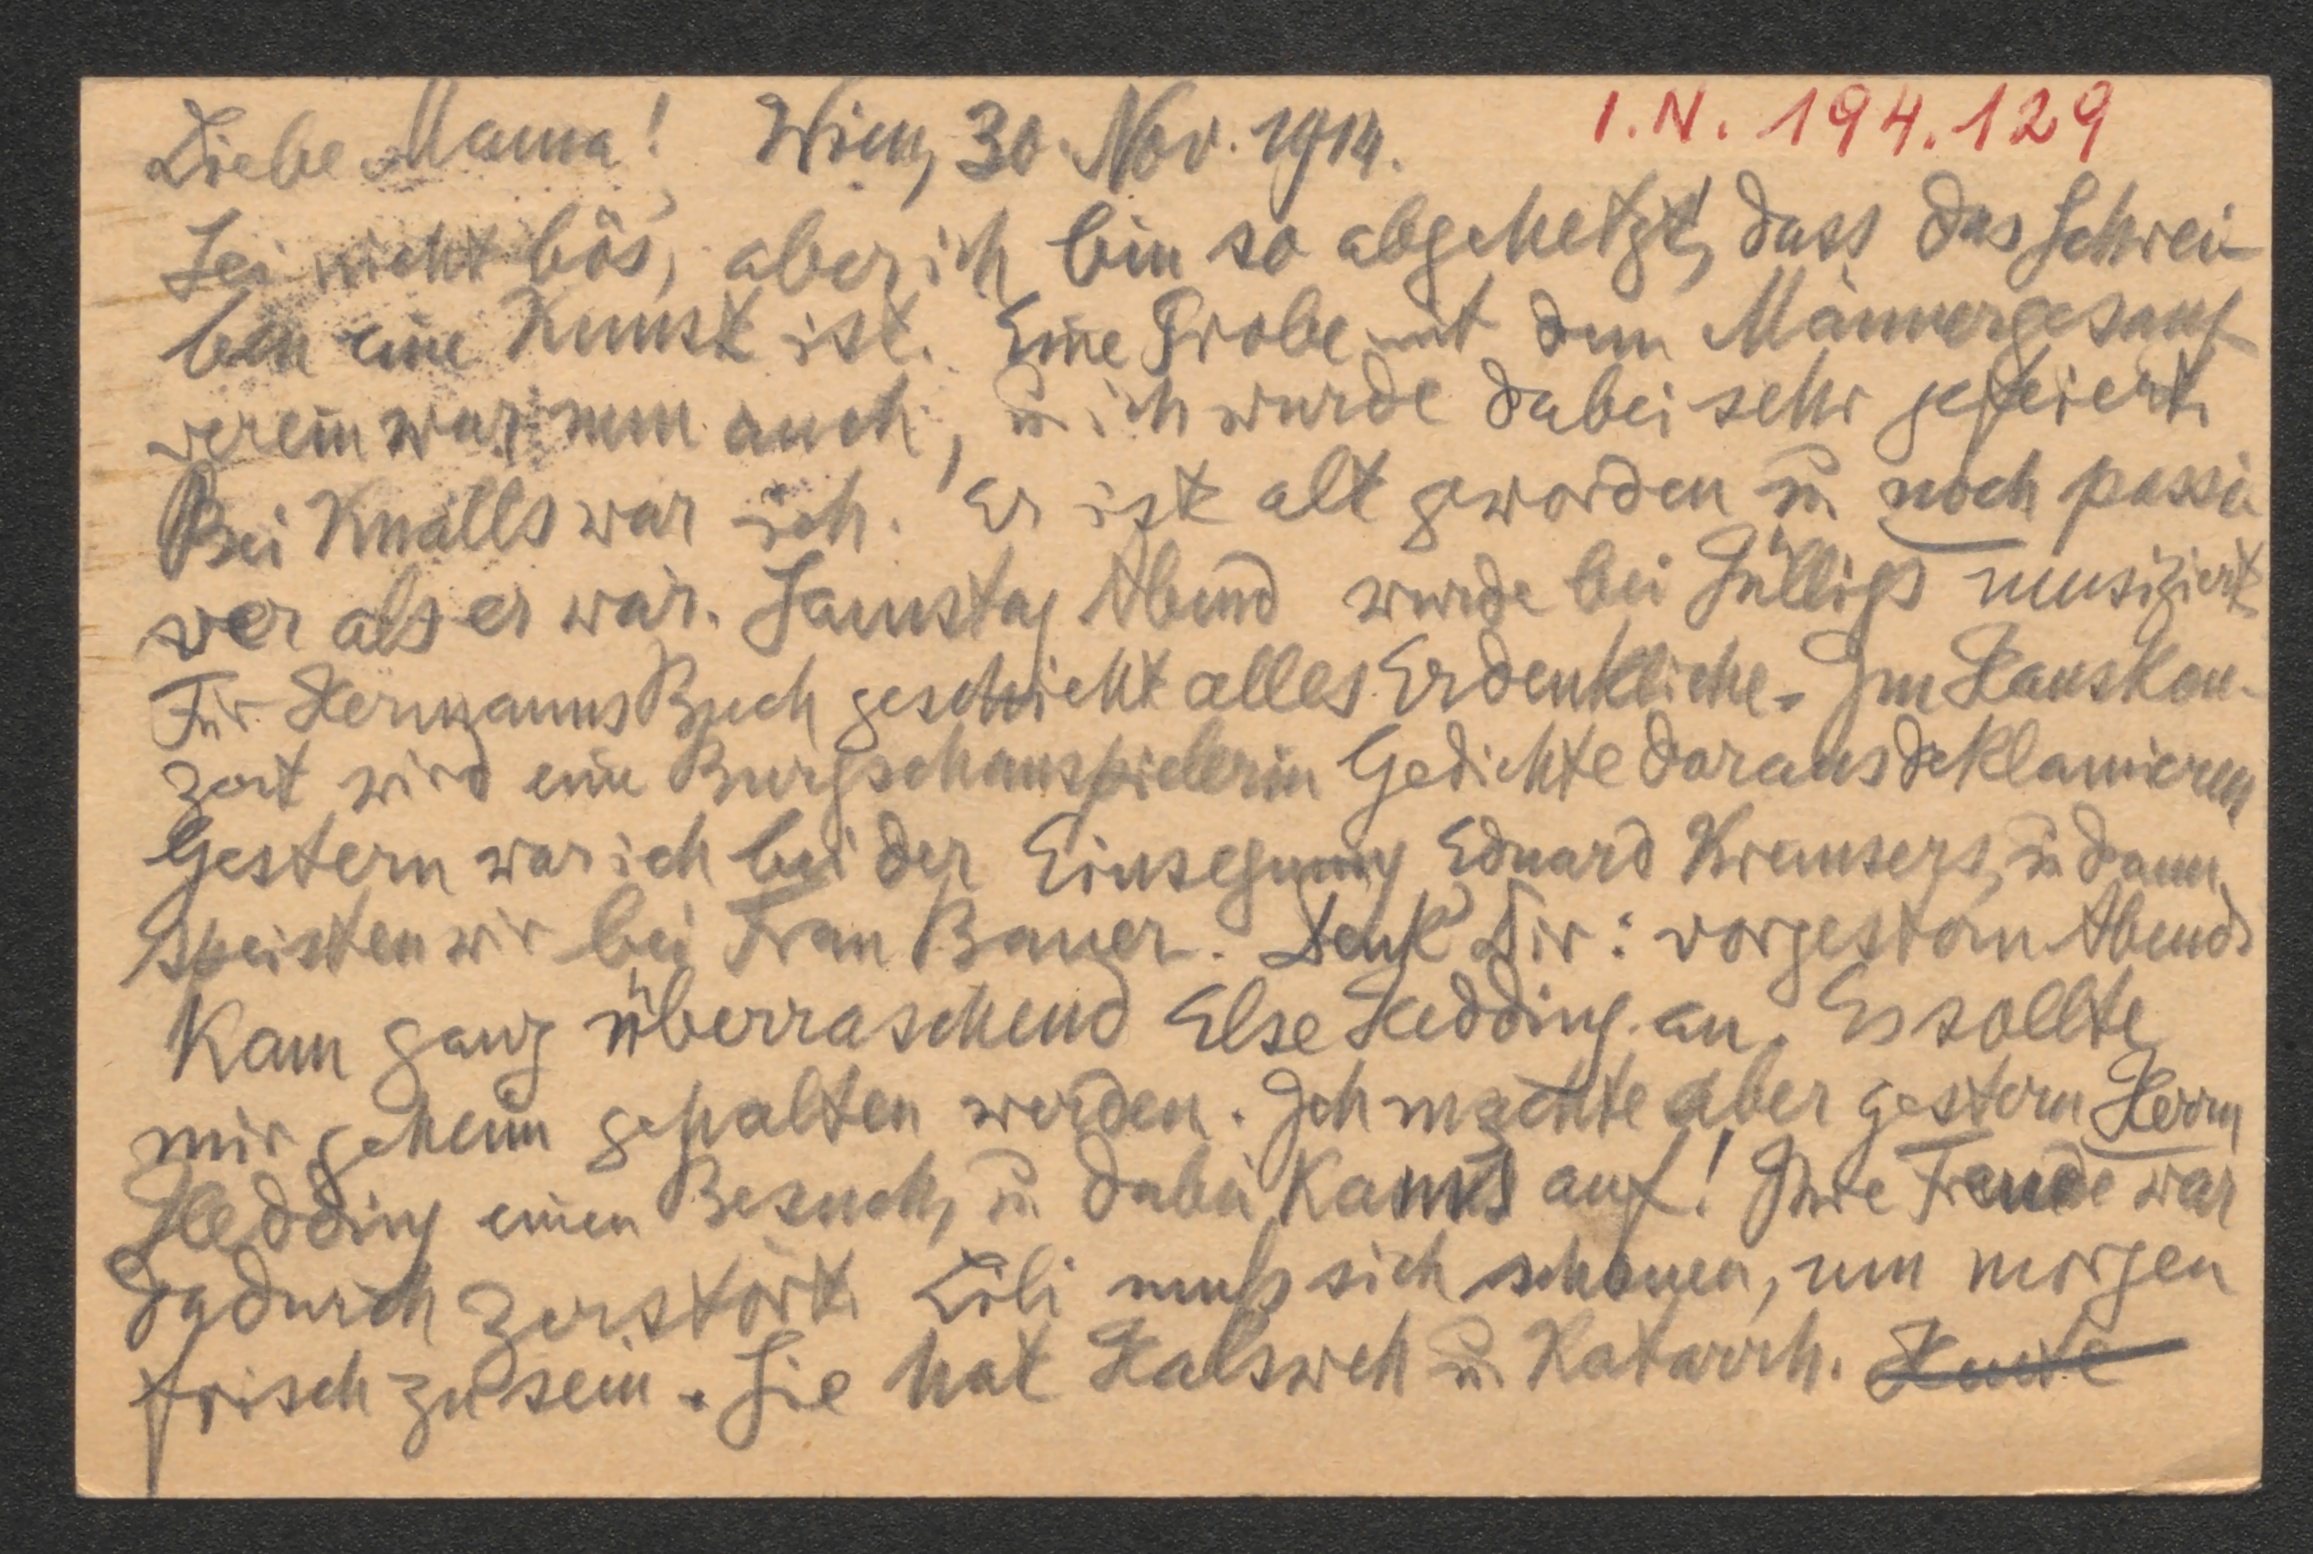 Liebe Mama! Wien, 30. Nov. 1914. I.N. 194.129
Sei nicht bös, aber ich bin so abgehetzt, dass das Schrei-
ben eine Kunst ist. Eine Probe mit dem Männergesang
verein war nun auch, u. ich wurde dabei sehr gefeiert.
Bei Knalls war ich. Er ist alt geworden u. noch passi
ver als er war. Samstag Abend wurde bei musiziert
Für Hermanns Buch geschieht alles Erdenkliche. Im Hauskon-
zert wird eine Burgschauspielerin Gedichte daraus deklamieren
Gestern war ich bei der Einsegnung Eduard Kremsers, u. dann
speisten wir bei Frau Bauer. Denk' Dir: vorgestern Abends
kam ganz überraschend Else Hedding an. Es sollte
mir geheim gehalten werden. Ich machte aber gestern Herrn
Hedding einen Besuch, u. dabei kam's auf! Ihre Freude war
dadurch zerstört. Lili muß sich schonen, um morgen
frisch zu sein. Sie hat Halsweh u. Katarrh. Heute